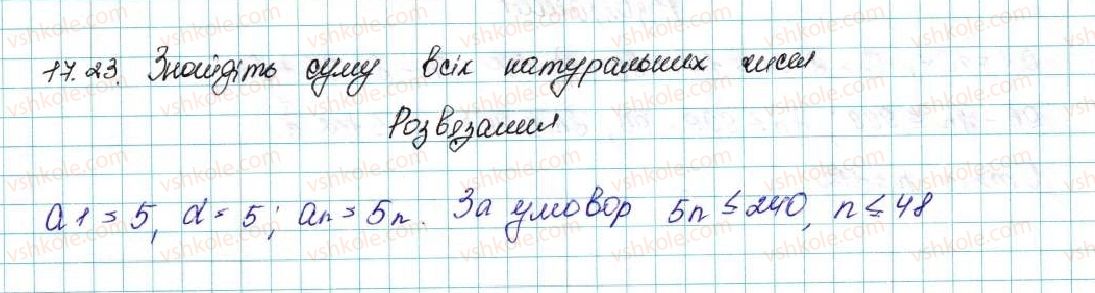 17.23. Знайдіть суму всіх натуральних чисел
Розв'язання
a1 = 5, d = 5; an = 5n. За умовою 5n ≤ 240, n ≤ 48